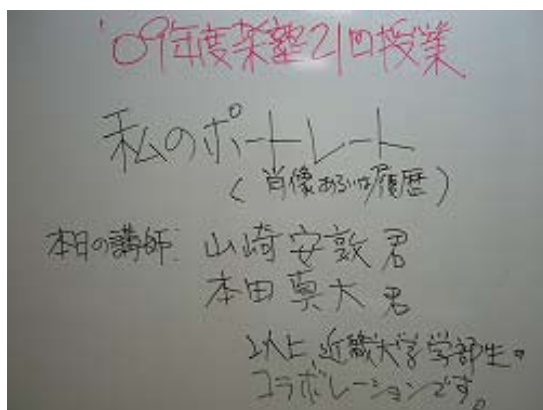 '09年度楽塾21回授業
私のポートレート
(肖像あるいは履歴)
本日の講師: 山崎安敦君
本田真大君
以上、近畿大学学部生の
コラボレーションです。